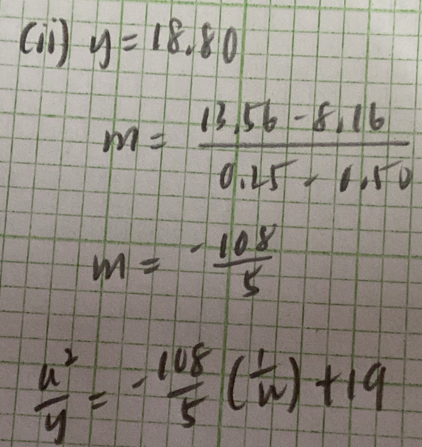 (ii) y = 18.80
m = (13.56 - 8.16) / (0.25 - 0.50)
m = -108/5
x²/y = -108/5 (1/x) + 19